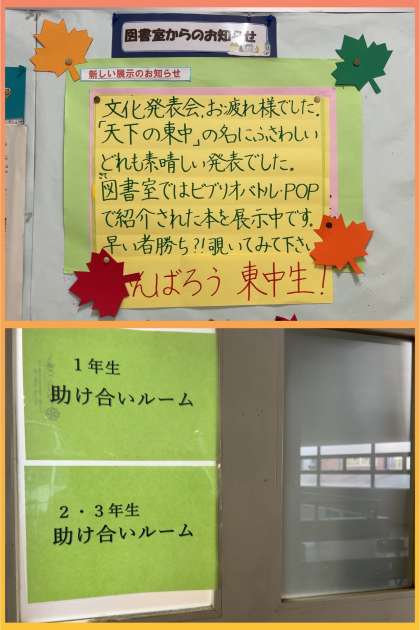 図書室からのお知らせ
新しい展示のお知らせ
文化発表会、お疲れ様でした。
「天下の東中」の名にふさわしい
どれも素晴しい発表でした。
さて
図書室ではビブリオバトル・POP
で紹介された本を展示中です。
早い者勝ち?!覗いてみて下さい
んばろう 東中生!
1年生
助け合いルーム
2・3年生
助け合いルーム